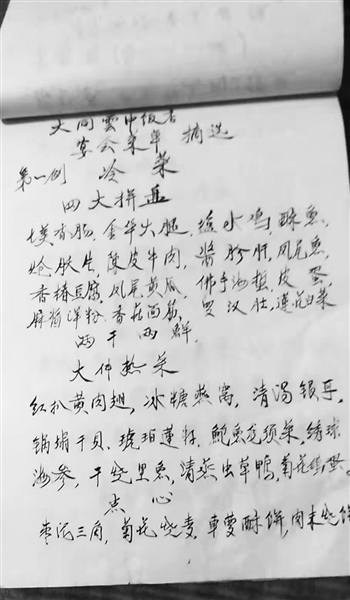 大同云中饭店
宴会菜单 摘选
第一例 冷菜
四大拼盘
香肠,金华火腿,盐水鸡,酥鱼,
炝肚片,陈皮牛肉,酱肫肝,凤尾鱼,
香椿豆腐,凤尾黄瓜,佛手海蜇,皮蛋,
麻酱洋粉,香菇面筋,罗汉肚,莲花白菜
两干两鲜,
大件热菜
红扒黄肉翅,冰糖燕窝,清汤银耳,
锅塌干贝,琥珀莲籽,鲍鱼龙须菜,绣球
海参,干烧黑鱼,清蒸虫草鸭,菊花
点心
枣泥三角,菊花烧麦,酥饼,肉末烧饼